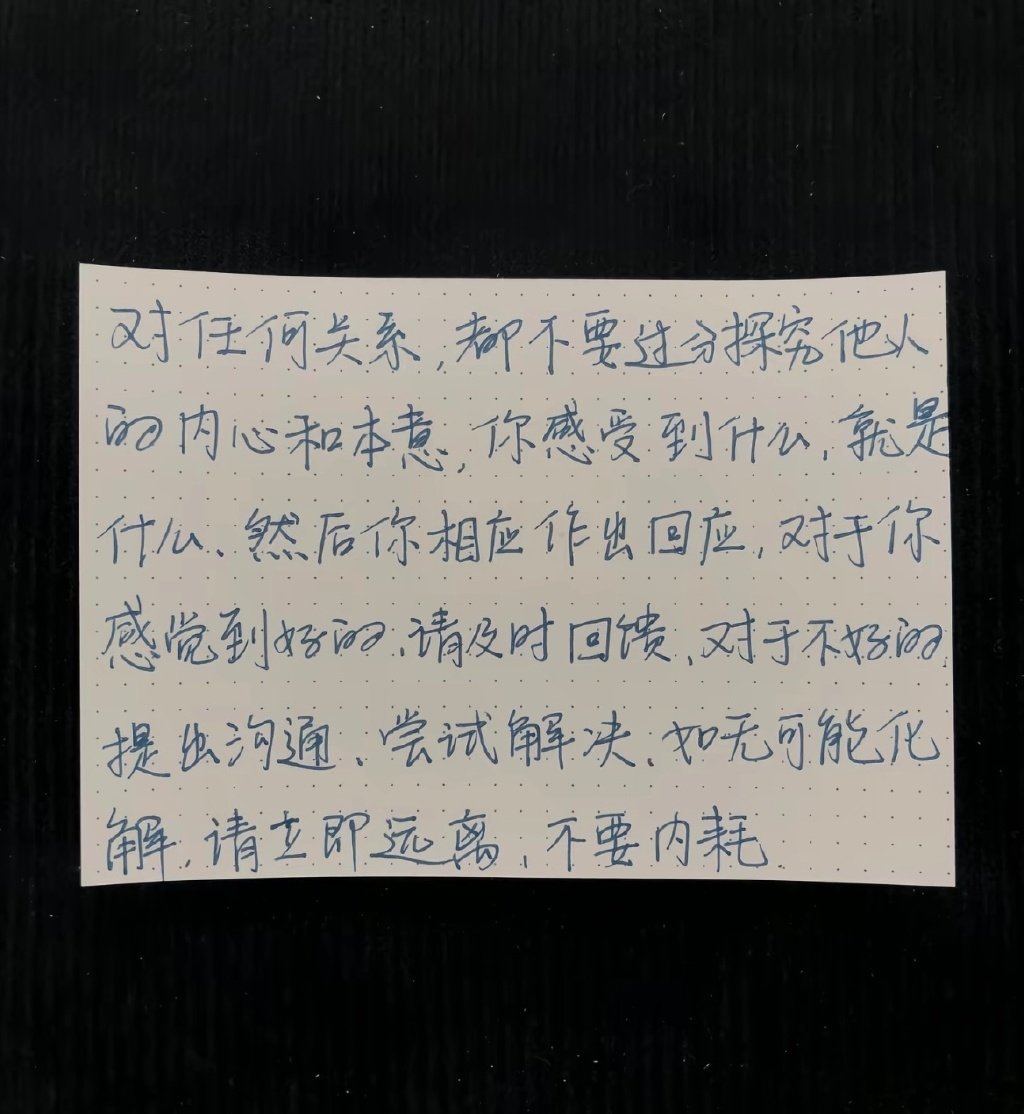 对任何关系,都不要过分探究他人
的内心和本意,你感受到什么,就是
什么、然后你相应作出回应,对于你
感觉到好的,请及时回馈、对于不好的,
提出沟通、尝试解决、如无可能化
解,请立即远离,不要内耗.